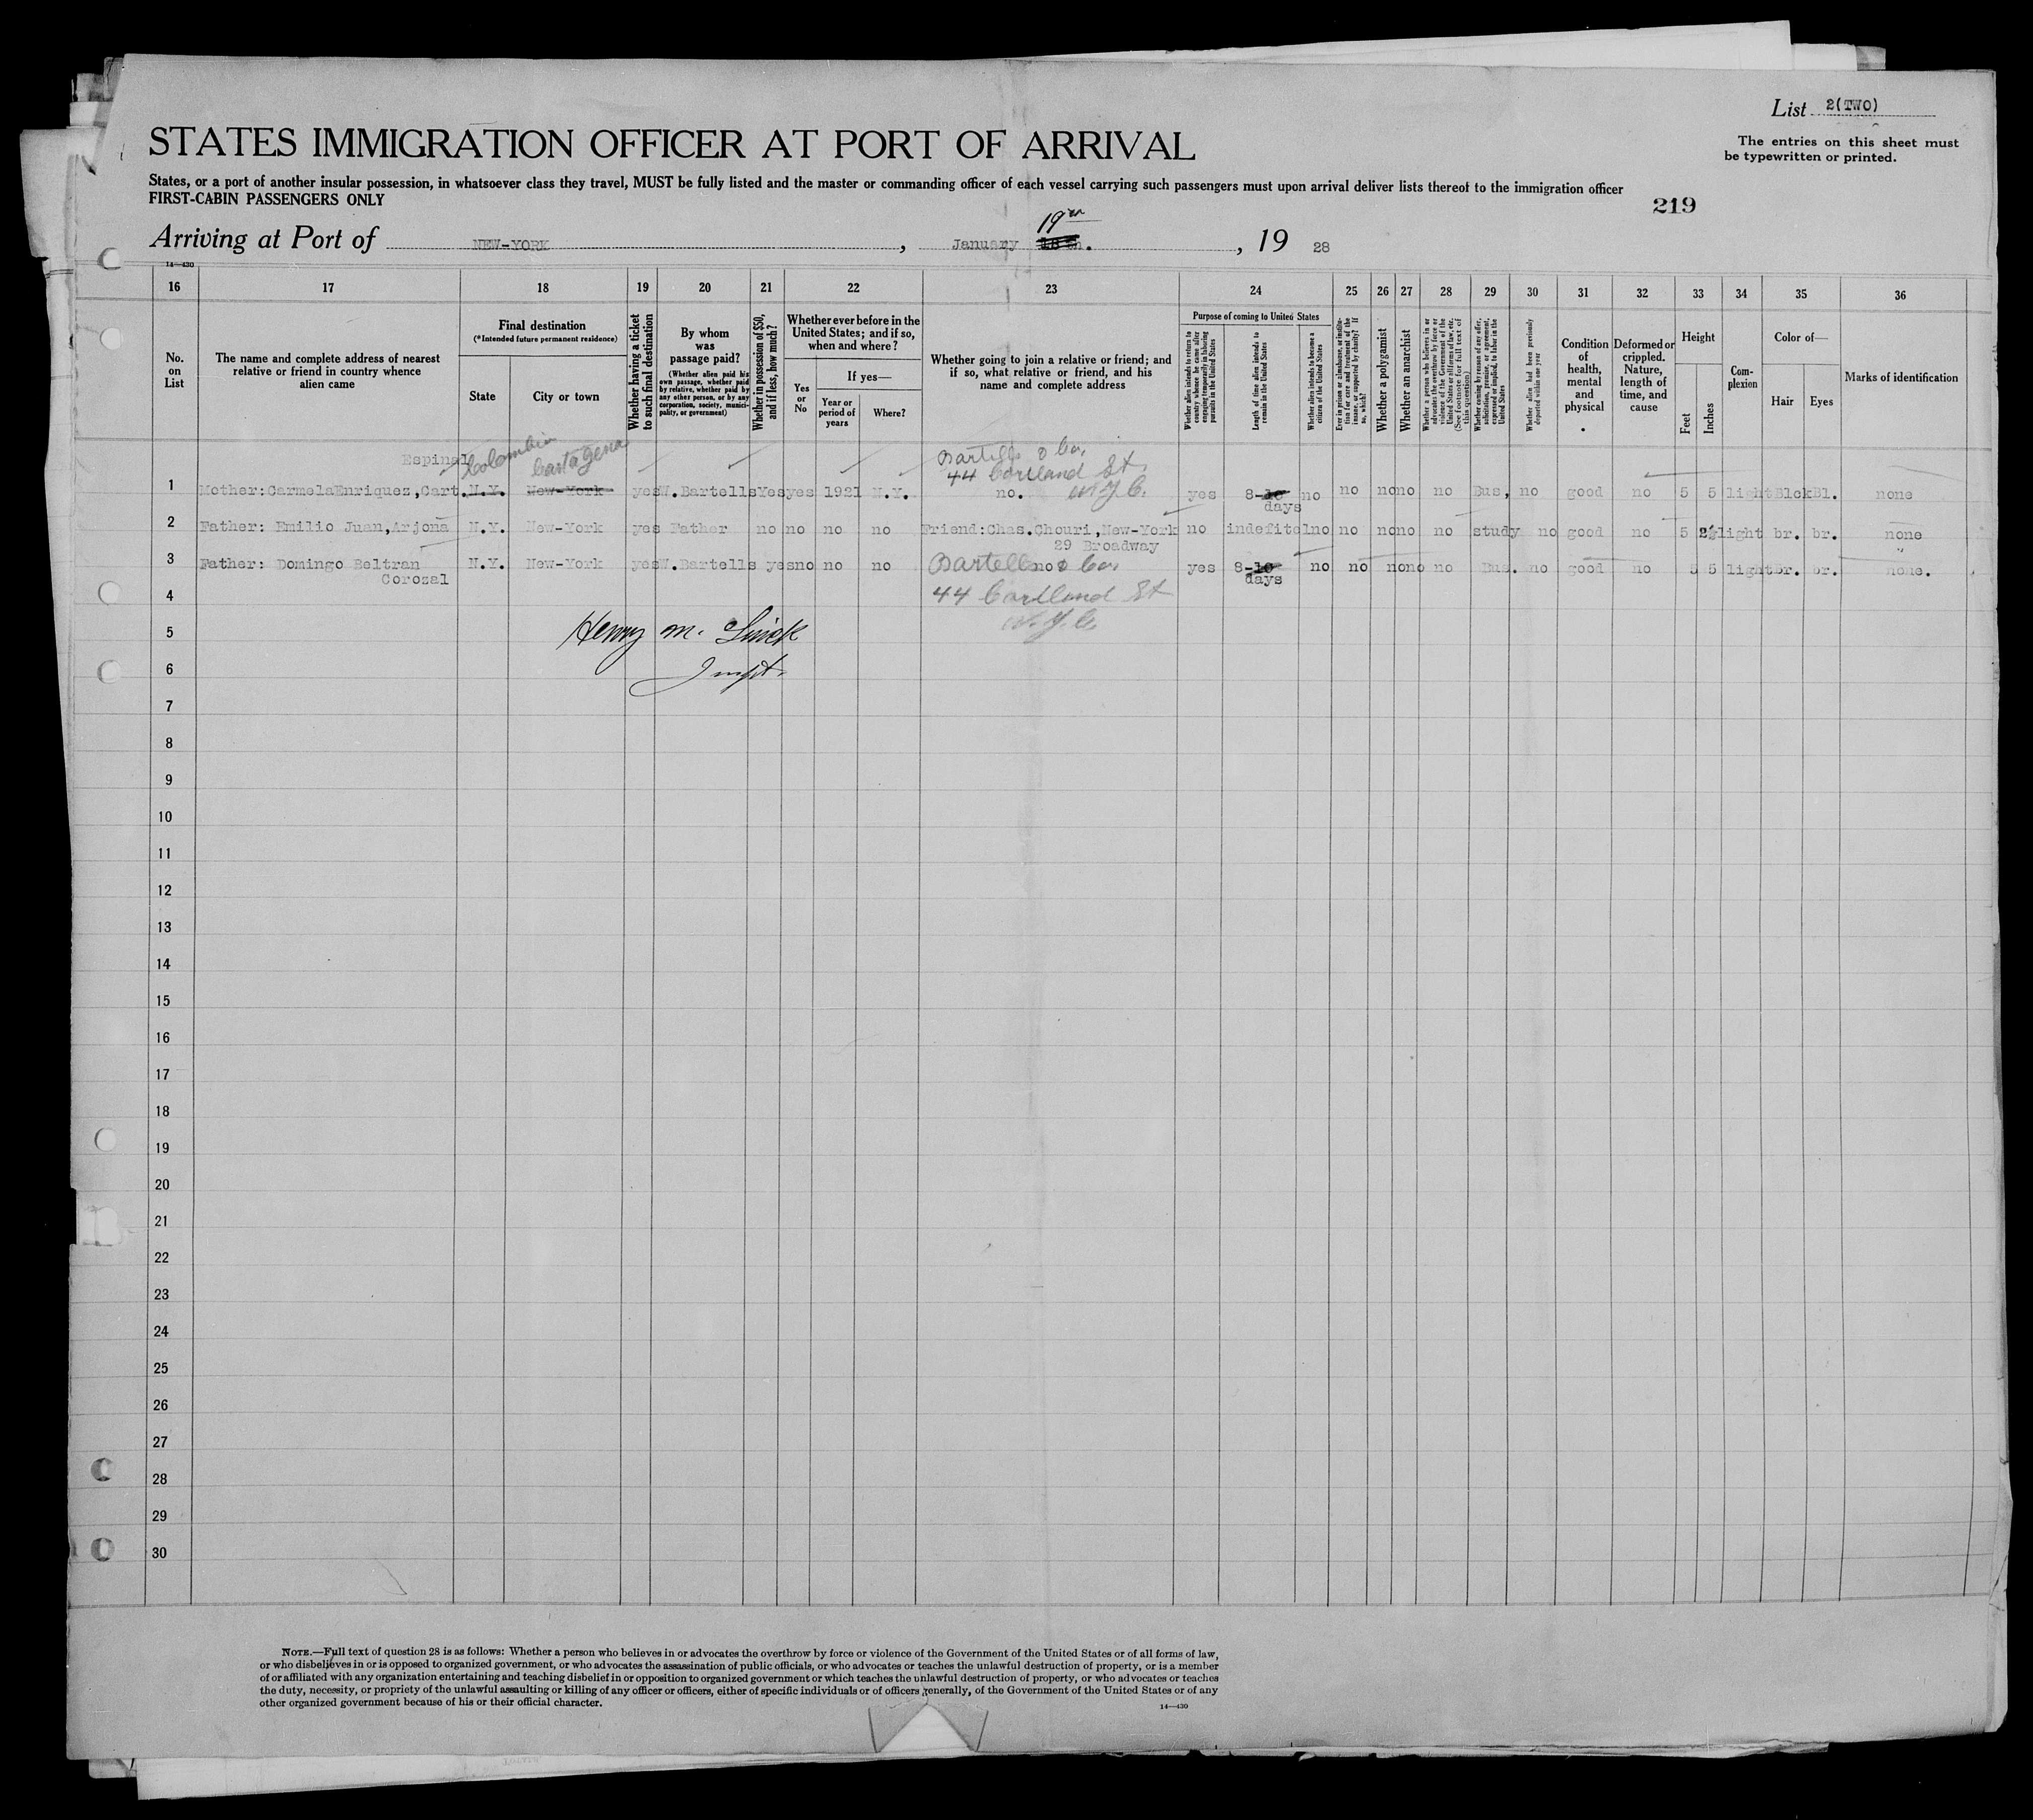 List 2(TWO)
STATES IMMIGRATION OFFICER AT PORT OF ARRIVAL
The entries on this sheet must
be typewritten or printed.
States, or a port of another insular possession, in whatsoever class they travel, MUST be fully listed and the master or commanding officer of each vessel carrying such passengers must upon arrival deliver lists thereof to the immigration officer
FIRST-CABIN PASSENGERS ONLY
219
19th
Arriving at Port of NEW-YORK, January 18th., 19 28
14—430
16 17 18 19 20 21 22 23 24 25 26 27 28 29 30 31 32 33 34 35 36
No. on List
The name and complete address of nearest relative or friend in country whence alien came
Final destination
(*Intended future permanent residence)
State
City or town
Whether having a ticket to such final destination
By whom was passage paid?
(Whether alien paid his own passage, whether paid by relative, whether paid by any other person, or by any corporation, society, municipality, or government)
Whether in possession of $50, and if less, how much?
Whether ever before in the United States; and if so, when and where?
Yes or No
If yes—
Year or period of years
Where?
Whether going to join a relative or friend; and if so, what relative or friend, and his name and complete address
Purpose of coming to United States
Whether alien intends to return to country whence he came after engaging temporarily in laboring pursuits in the United States
Length of time alien intends to remain in the United States
Whether alien intends to become a citizen of the United States
Ever in prison or almshouse, or institution for care and treatment of the insane, or supported by charity? If so, which?
Whether a polygamist
Whether an anarchist
Whether a person who believes in or advocates the overthrow by force or violence of the Government of the United States or all forms of law, etc. (See footnote for full text of this question)
Whether coming by reason of any offer, solicitation, promise, or agreement, expressed or implied, to labor in the United States
Whether alien had been previously deported within one year
Condition of health, mental and physical
Deformed or crippled. Nature, length of time, and cause
Height
Feet
Inches
Complexion
Color of—
Hair
Eyes
Marks of identification
Espinal Colombia Cartagena Bartells & Co.
44 Cortland St.
1 Mother:CarmelaEnriquez,Cart. N.Y. New-York yes W.Bartells Yes yes 1921 N.Y. no. N.Y.C. yes 8-10 no no no no no Bus, no good no 5 5 light Blck Bl. none
days
2 Father: Emilio Juan,Arjona N.Y. New-York yes Father no no no no Friend:Chas.Chouri,New-York no indefitel no no no no no study no good no 5 2½ light br. br. none
29 Broadway
3 Father: Domingo Beltran N.Y. New-York yes W.Bartells yes no no no Bartells no & Co. yes 8-10 no no no no no Bus. no good no 5 5 light br. br. none.
Corozal days
4 44 Cortland St
N.Y.C.
5 Henry M.
6 Inspt.
7
8
9
10
11
12
13
14
15
16
17
18
19
20
21
22
23
24
25
26
27
28
29
30
NOTE.—Full text of question 28 is as follows: Whether a person who believes in or advocates the overthrow by force or violence of the Government of the United States or of all forms of law,
or who disbelieves in or is opposed to organized government, or who advocates the assassination of public officials, or who advocates or teaches the unlawful destruction of property, or is a member
of or affiliated with any organization entertaining and teaching disbelief in or opposition to organized government or which teaches the unlawful destruction of property, or who advocates or teaches
the duty, necessity, or propriety of the unlawful assaulting or killing of any officer or officers, either of specific individuals or of officers generally, of the Government of the United States or of any
other organized government because of his or their official character.
14—430